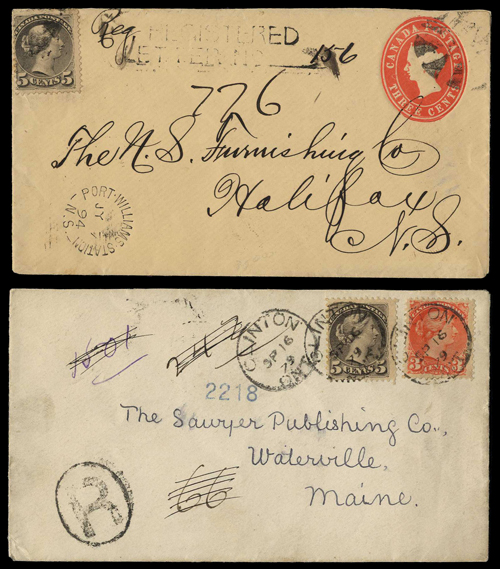 5 CENTS 5
Reg
REGISTERED
LETTER No
156
CANADA POSTAGE
THREE CENTS
776
The N.S. Furnishing Co
Halifax
N.S.
PORT-WILLIAMS-STATION
JY
94
N.S.
CLINTON
SP 16
CLINTON
ONT
5 CENTS 5
CLINTON
SP 16
3 CENTS 3
2218
The Sawyer Publishing Co.,
Waterville,
Maine.
R
66